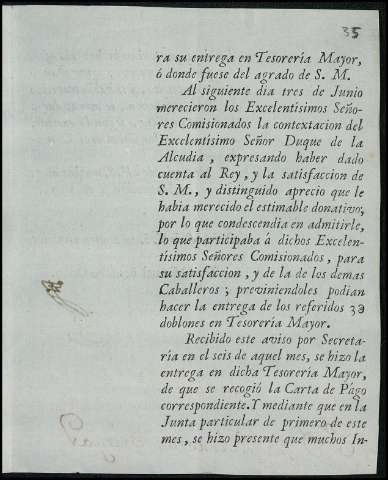 35
ra su entrega en Tesorería Mayor,
ó donde fuese del agrado de S. M.
Al siguiente dia tres de Junio
merecieron los Excelentisimos Seño-
res Comisionados la contextacion del
Excelentísimo Señor Duque de la
Alcudia, expresando haber dado
cuenta al Rey, y la satisfaccion de
S. M., y distinguido aprecio que le
habia merecido el estimable donativo,
por lo que condescendia en admitirle,
lo que participaba á dichos Excelen-
tísimos Señores Comisionados, para
su satisfaccion, y de la de los demas
Caballeros; previniendoles podian
hacer la entrega de los referidos
doblones en Tesorería Mayor.
Recibido este aviso por Secreta-
ría en el seis de aquel mes, se hizo la
entrega en dicha Tesorería Mayor,
de que se recogió la Carta de Pago
correspondiente. Y mediante que en la
Junta particular de primero de este
mes, se hizo presente que muchos In-